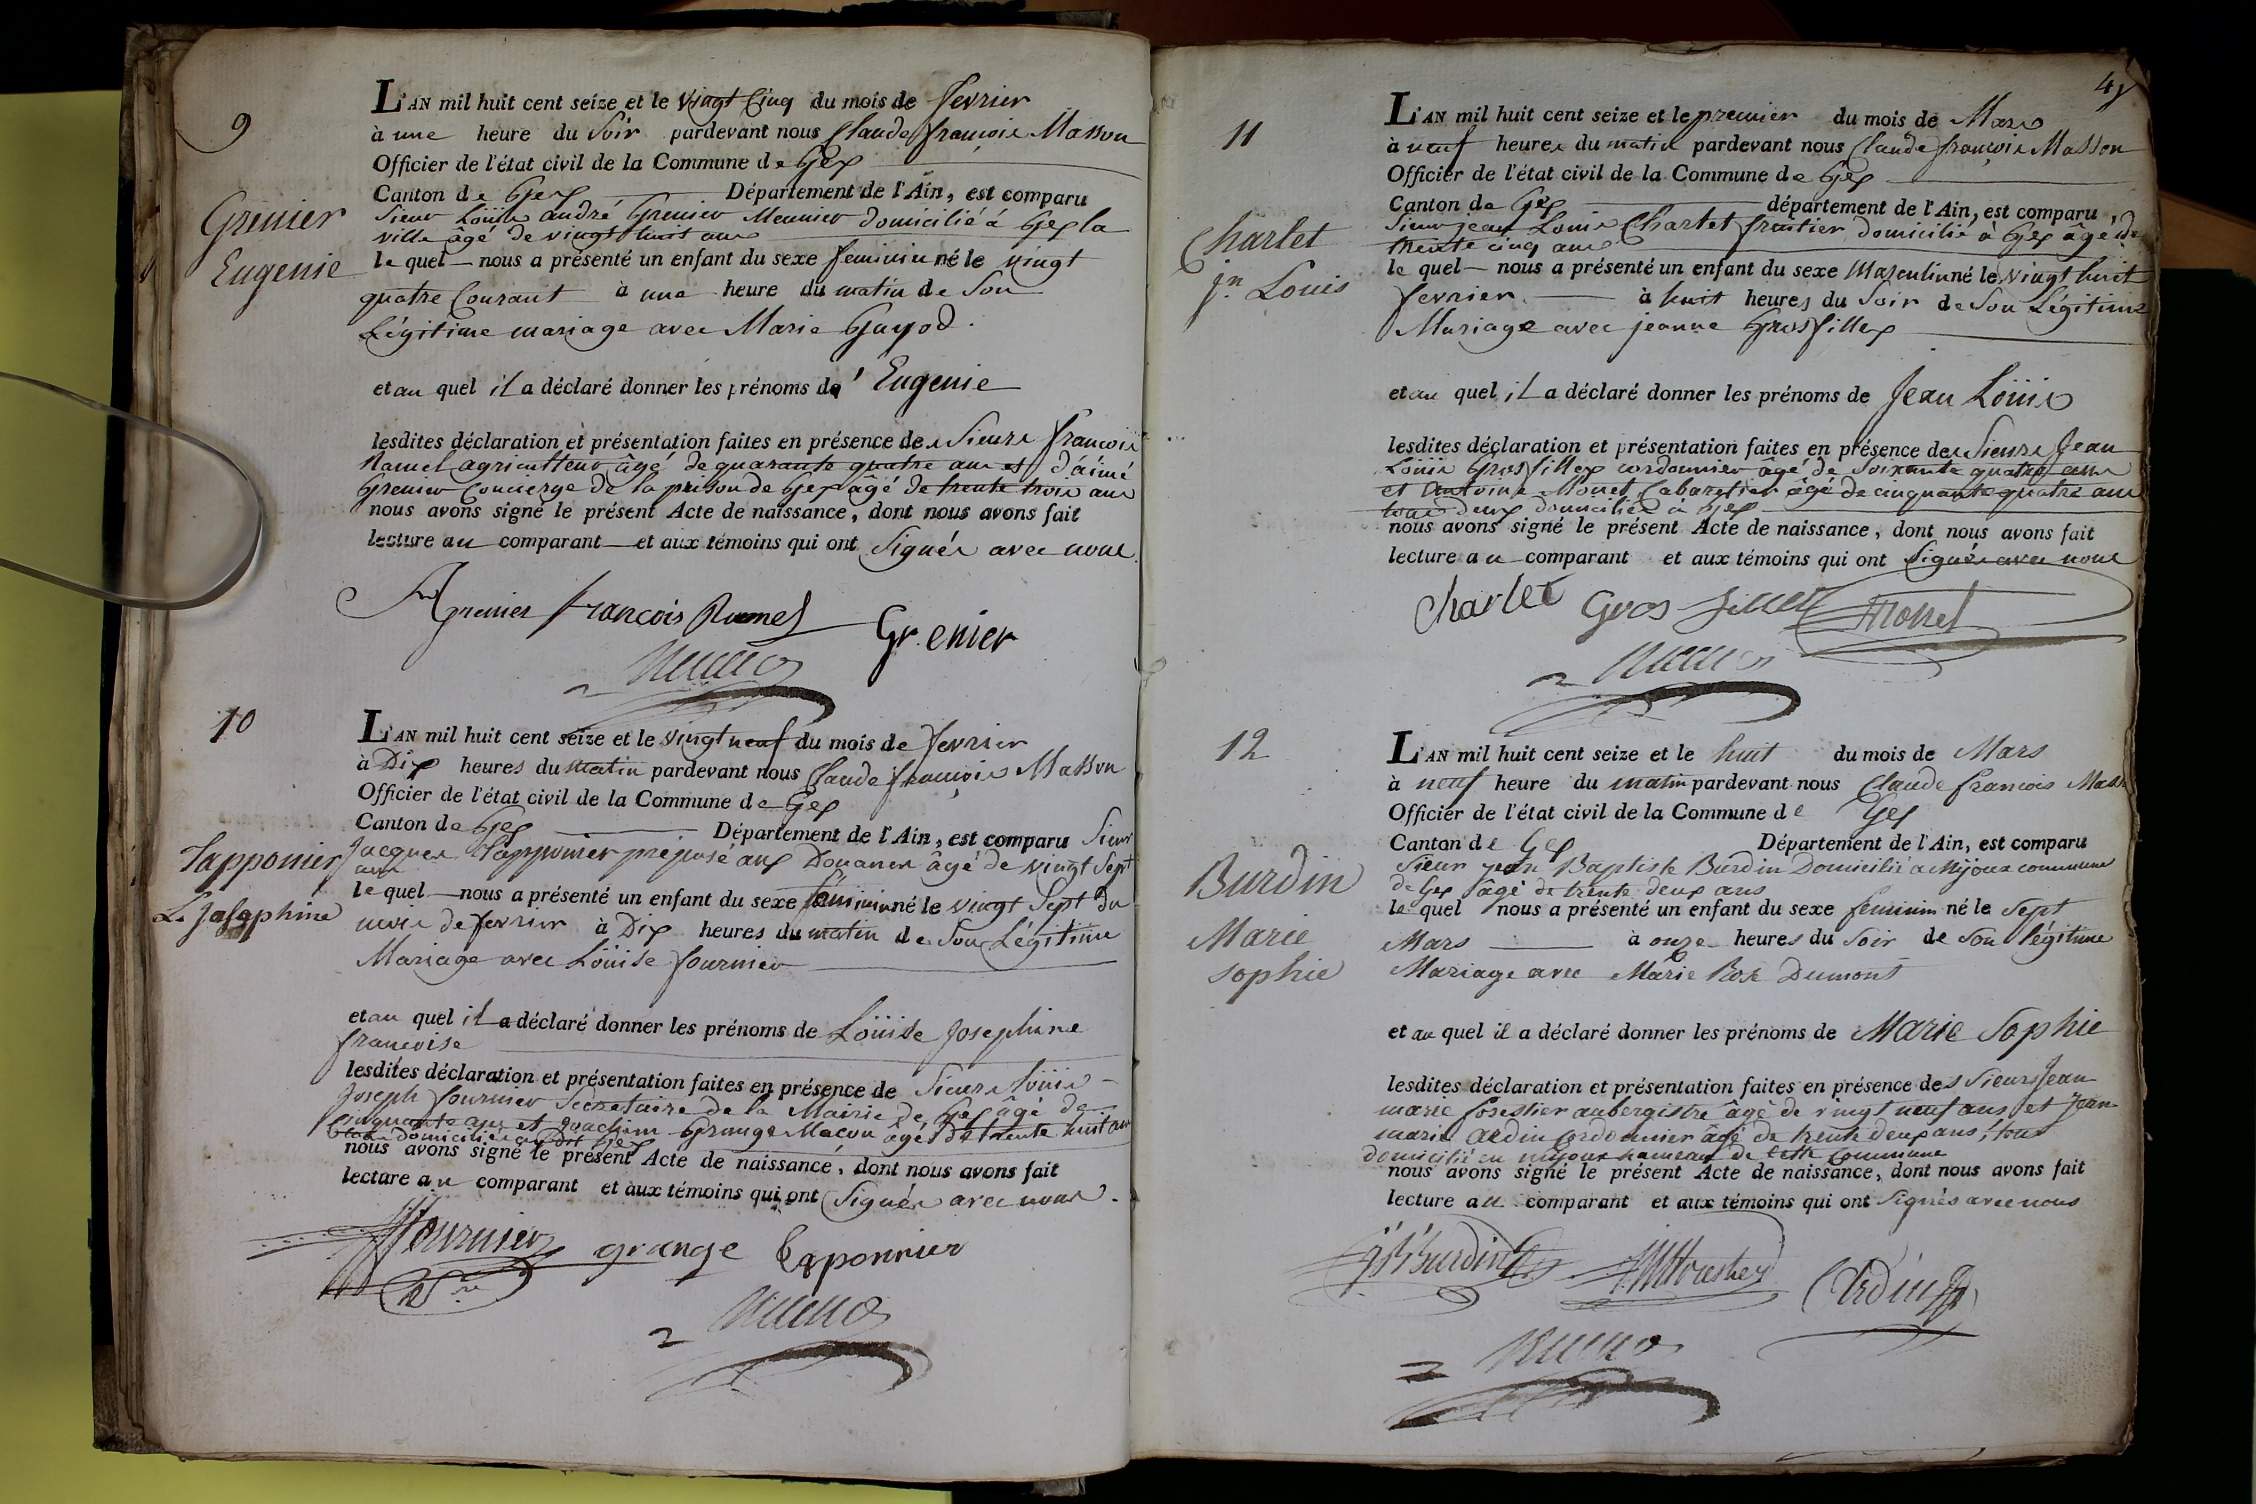 9
Grenier
Eugenie
L'AN mil huit cent seize et le vingt Cinq du mois de fevrier
à une heure du Soir pardevant nous Claude françois Masson
Officier de l'état civil de la Commune de Gex
Canton de Gex Département de l'Ain, est comparu
Sieur Loüis andré Grenier Meunier domicilié à Gex la
ville âgé de vingt huit ans
le quel nous a présenté un enfant du sexe feminin né le vingt
quatre Courant à une heure du matin de Son
Légitime mariage avec Marie Guyod.
et au quel il a déclaré donner les prénoms de Eugenie
lesdites déclaration et présentation faites en présence des Sieurs françois
agriculteur âgé de quarante quatre ans et d'aimé
Grenier Concierge de la prison de Gex âgé de trente trois ans
nous avons signé le présent Acte de naissance, dont nous avons fait
lecture au comparant et aux témoins qui ont Signés avec nous.
Agrenier françois Grenier
10
Tapponier
L. Josephine
L'AN mil huit cent seize et le vingt neuf du mois de fevrier
à Dix heures du matin pardevant nous Claude françois Masson
Officier de l'état civil de la Commune de Gex
Canton de Gex Département de l'Ain, est comparu Sieur
Jacques Tapponier préposé aux Douanes âgé de vingt Sept
ans
le quel nous a présenté un enfant du sexe féminin né le vingt Sept du
mois de fevrier à Dix heures du matin de Son Légitime
Mariage avec Loüise fournier
et au quel il a déclaré donner les prénoms de Loüise Josephine
francoise
lesdites déclaration et présentation faites en présence de Sieurs Loüis
Joseph fournier Secretaire de la Mairie de Gex âgé de
Cinquante ans et Joachim Grange Macon âgé de trente huit ans
tous domiciliés au dit Gex
nous avons signé le présent Acte de naissance, dont nous avons fait
lecture au comparant et aux témoins qui ont Signés avec nous.
fournier grange Tapponnier
4
11
Charlet
jn. Louis
L'AN mil huit cent seize et le premier du mois de Mars
à neuf heures du matin pardevant nous Claude françois Masson
Officier de l'état civil de la Commune de Gex
Canton de Gex département de l'Ain, est comparu,
Sieur jean Louis Charlet fruitier domicilié à Gex âgé de
trente cinq ans
le quel nous a présenté un enfant du sexe Masculin né le vingt huit
fevrier à huit heures du Soir de Son Légitime
Mariage avec jeanne Grosfillex
et au quel il a déclaré donner les prénoms de Jean Loüis
lesdites déclaration et présentation faites en présence des Sieurs Jean
Loüis Grosfillex cordonnier âgé de Soixante quatre ans
et Antoine Monet Cabaretier âgé de cinquante quatre ans
tous deux domiciliés à Gex
nous avons signé le présent Acte de naissance, dont nous avons fait
lecture au comparant et aux témoins qui ont Signés avec nous
Charlet Gros fillex
12
Burdin
Marie
Sophie
L'AN mil huit cent seize et le huit du mois de Mars
à neuf heure du matin pardevant nous Claude francois Mass
Officier de l'état civil de la Commune de Gex
Canton de Gex Département de l'Ain, est comparu
Sieur jean Baptiste Burdin Domicilié a Mijoux commune
de Gex âgé de trente deux ans
le quel nous a présenté un enfant du sexe feminin né le Sept
Mars à onze heures du Soir de Son légitime
Mariage avec Marie Rose Dumont
et au quel il a déclaré donner les prénoms de Marie Sophie
lesdites déclaration et présentation faites en présence des Sieurs Jean
marie forestier aubergiste âgé de vingt neuf ans et Jean
marie Ardin Cordonnier âgé de trente deux ans, tous
domicilié en mijoux hameau de Cette Commune
nous avons signé le présent Acte de naissance, dont nous avons fait
lecture au comparant et aux témoins qui ont Signés avec nous
Burdin Ardin